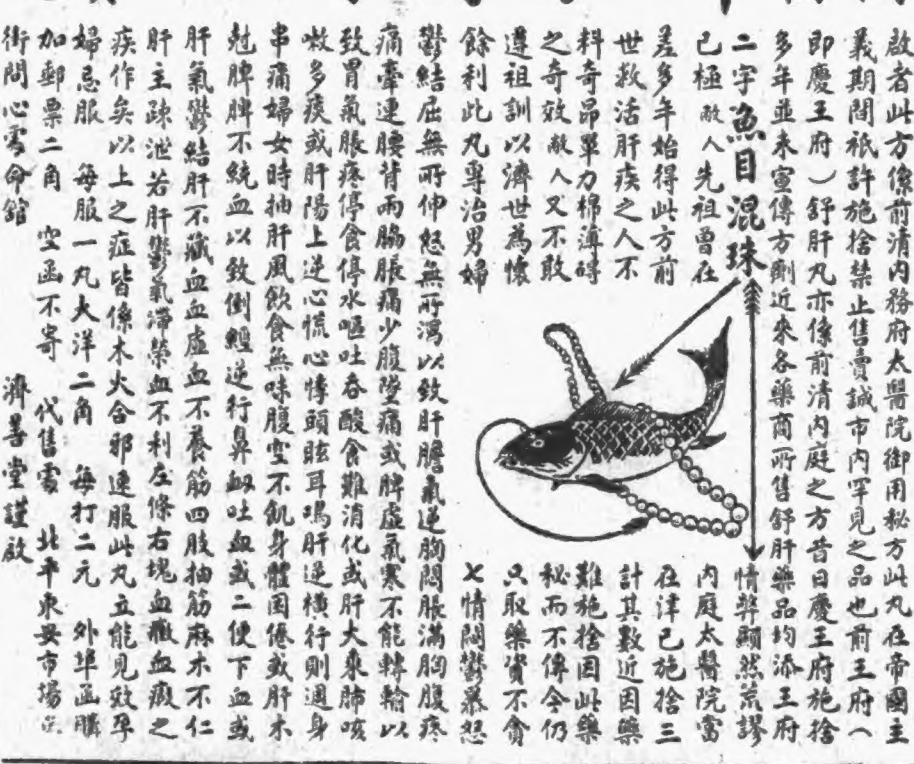 啟者此方係前清內務府太醫院御用秘方此丸在帝國主
義期間祇許施捨禁止售賣誠市內罕見之品也前王府（
即慶王府）舒肝丸亦係前清內庭之方昔日慶王府施捨
多年並未宣傳方劑近來各藥商所售舒肝藥品均添王府
二字魚目混珠 情弊顯然荒謬
已極敝人先祖曾在 內庭太醫院當
差多年始得此方前 在津已施捨三
世救活肝疾之人不 計其數近因藥
料奇昂單力棉薄碍 難施捨因此藥
之奇效敝人又不敢 秘而不傳今仍
遵祖訓以濟世為懷 只取藥資不貪
餘利此丸專治男婦 七情悶鬱暴怒
鬱結屈無所伸怒無所瀉以致肝膽氣逆胸悶脹滿胸腹疼
痛牽連腰背兩脇脹痛少腹墜痛或脾虛氣寒不能轉輸以
致胃氣脹疼停食停水嘔吐吞酸食難消化或肝火乘肺咳
嗽多痰或肝陽上逆心慌心悸頭眩耳鳴肝逆橫行則週身
串痛婦女時抽肝風飲食無味腹空不飢身體困倦或肝木
尅脾脾不統血以致倒經逆行鼻衂吐血或二便下血或
肝氣鬱結肝不藏血血虛血不養筋四肢抽筋麻木不仁
肝主疎泄若肝鬱氣滯榮血不利左條右塊血癥血瘕之
疾作矣以上之症皆係木火合邪連服此丸立能見效孕
婦忌服 每服一丸大洋二角 每打二元 外埠函購
加郵票二角 空函不寄 代售處 北平東安市場正
街問心處命館 濟善堂謹啟